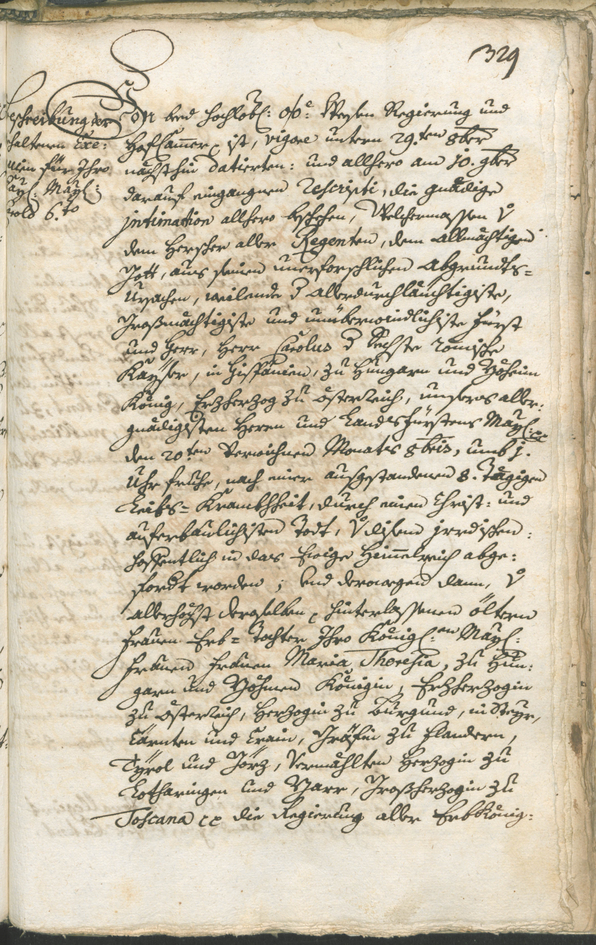 329
Beschreibung der
gehaltenen Exe-
quien für Ihro
Kay: May:
Carold 6.to
Von beed hochlobl: OÖ: Wesen Regierung und
HofCammer ist, vigore untern 29.ten 8ber
nechsthin datierten: und allhero am 10. 9ber
darauf eingangnen rescripti, die gnädige
intimation allhero beschehen, Welchermassen v
dem Herscher aller Regenten, dem Allmächtigen
Gott, aus seinen unerforschlichen Abgrundts-
Ursachen, weilende d Allerdurchläuchtigiste,
Großmächtigiste und unüberwindlichiste Fürst
und Herr, Herr Carolus d Sechste Römische
Kayser, in Hispänien, zu Hungarn und Böheim
König, Erzherzog zu Österreich, unseres aller-
gnädigisten Herrn und Landtsfürstens May:
den 20.ten verwichnen Monats 8bris, umb 1.
Uhr fruhe, nach einer ausgestandenen 8. Tägigen
Leibs-Krankhheit, durch einen Christ- und
auferbäulichisten Todt, v disem irrdischen:
hoffentlich in das Ewige Himmelreich abge-
fordt worden; Und derowegen dann, v
allerhöchst deroselben hinterlassenen öltern
Frauen Erb-Tochter Ihro Königl:en May:
Frauen Frauen Maria Theresia, zu Hun-
garn und Böhmen Königin, Erzherzogin
zu Österreich, Herzogin zu Burgund, in Steyr,
Cärnten und Crain, Gräfin zu Flandern,
Tyrol und Görz, Vermählten Herzogin zu
Lotharingen und Barr, Großherzogin zu
Toscana die Regierung aller Erbkönig-